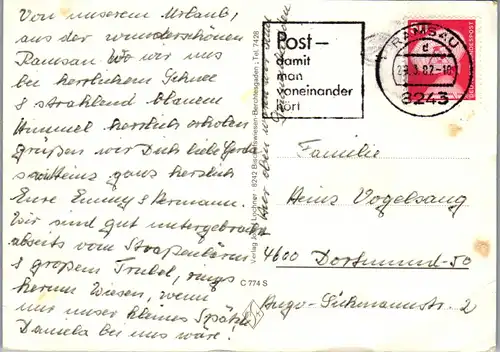 Von unserem Urlaub,
aus der wunderschönen
Ramsau. Wo wir uns
bei herrlichem Schnee
& strahlend blauem
Himmel herrlich erholen
grüßen wir Dich liebe Gerda
Heinz ganz herzlich
Eure Emmy & Hermann.
Wir sind gut untergebracht
abseits vom Straßenlärm
& großem Trubel, rings
herum Wiesen, wenn
nur unser kleines Spätzle
Daniela bei uns wäre!
Verlag Lochner · 8242 Bischofswiesen-Berchtesgaden · Tel. 7426
C 774 S
Post –
damit
man
voneinander
hört
RAMSAU
d
29.3.82-10
8243
DEUTSCHE BUNDESPOST
Familie
Heinz Vogelsang
4600 Dortmund-50
Hugo-Sickmannstr. 2